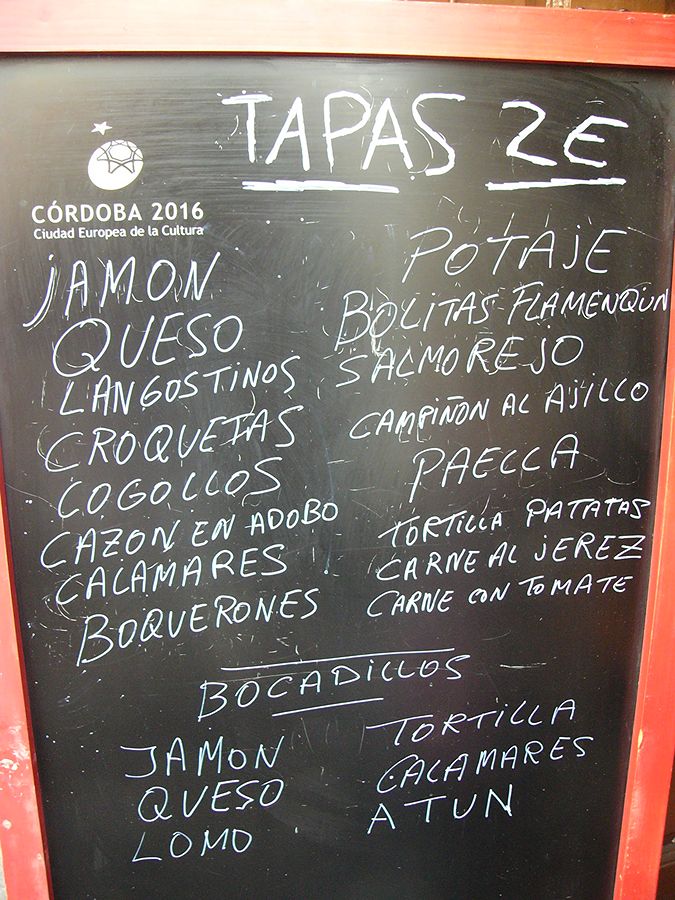 TAPAS 2E
CÓRDOBA 2016
Ciudad Europea de la Cultura
JAMON
QUESO
LANGOSTINOS
CROQUETAS
COGOLLOS
CAZON EN ADOBO
CALAMARES
BOQUERONES
POTAJE
BOLITAS FLAMENQUIN
SALMOREJO
CAMPIÑON AL AJILLO
PAELLA
TORTILLA PATATAS
CARNE AL JEREZ
CARNE CON TOMATE
BOCADILLOS
JAMON
QUESO
LOMO
TORTILLA
CALAMARES
ATUN